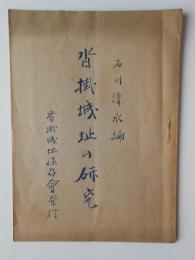 石川清水編
沓掛城址の研究
沓掛城址保存會発行